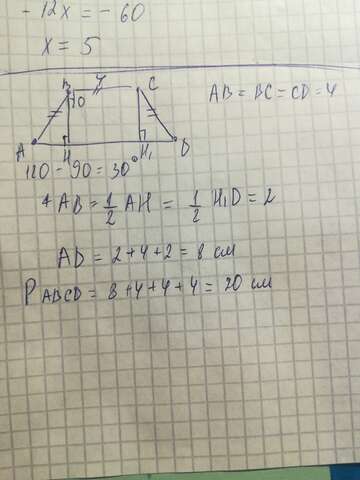 -12x = -60
x = 5
B 4 C
AB = BC = CD = 4
A H H₁ D
120 - 90 = 30°
AB = 1/2 AH = 1/2 H₁D = 2
AD = 2+4+2 = 8 см
P ABCD = 8+4+4+4 = 20 см